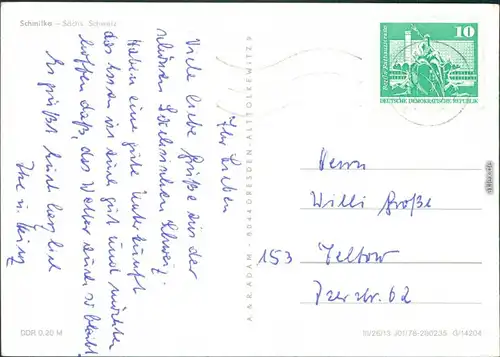 Schmilka – Sächs. Schweiz
Ihr Lieben
Viele liebe Grüße aus der
schönen Sächsischen Schweiz.
Haben eine gute Unterkunft
das Essen ist auch gut und möchten
hoffen daß das Wetter auch so bleibt!
Es grüßt Euch herzlich
A. & R. ADAM · 8046 DRESDEN · ALTTOLKEWITZ 9
10
Berlin · Rathausstraße
DEUTSCHE DEMOKRATISCHE REPUBLIK
Herrn
Willi Große
153 Teltow
Iserstr. 62
DDR 0,20 M
III/26/13 J01/78-280235 G/14204